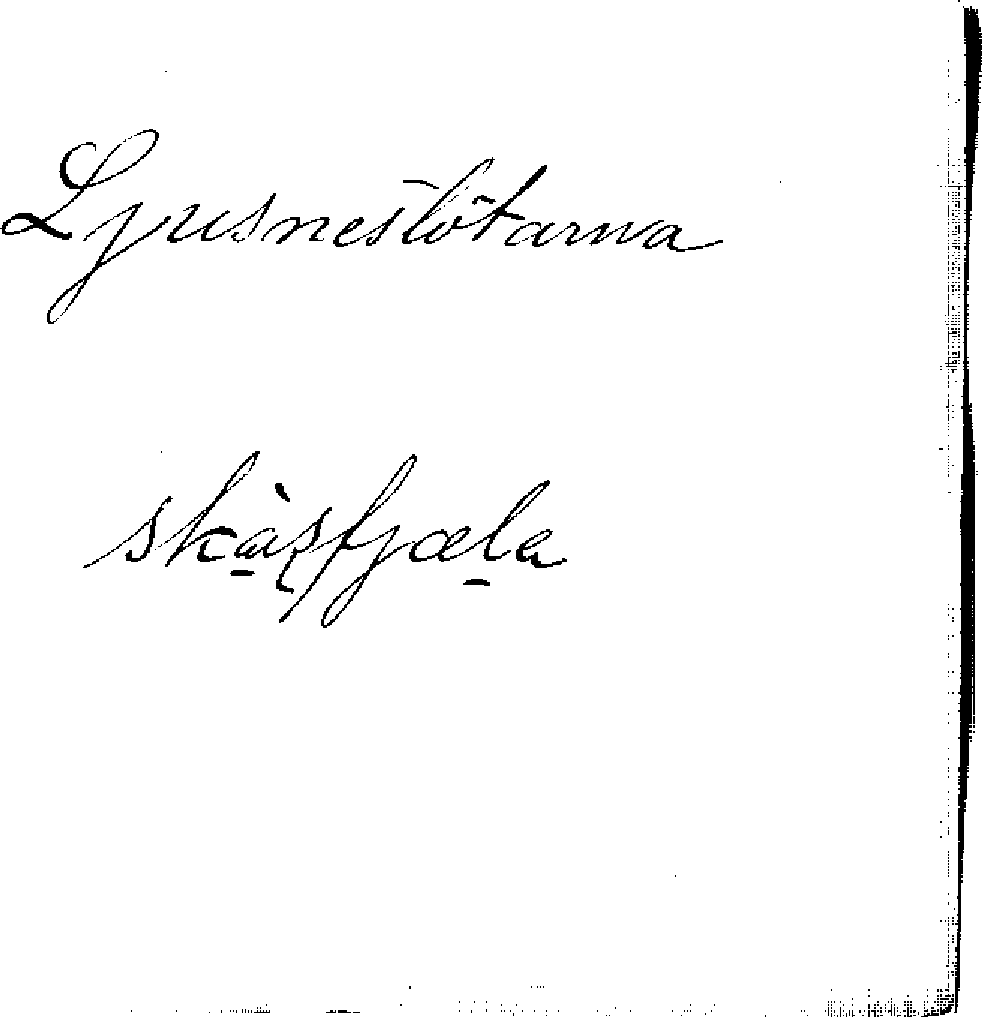 Ljusneslötarna
skàʂfjæla